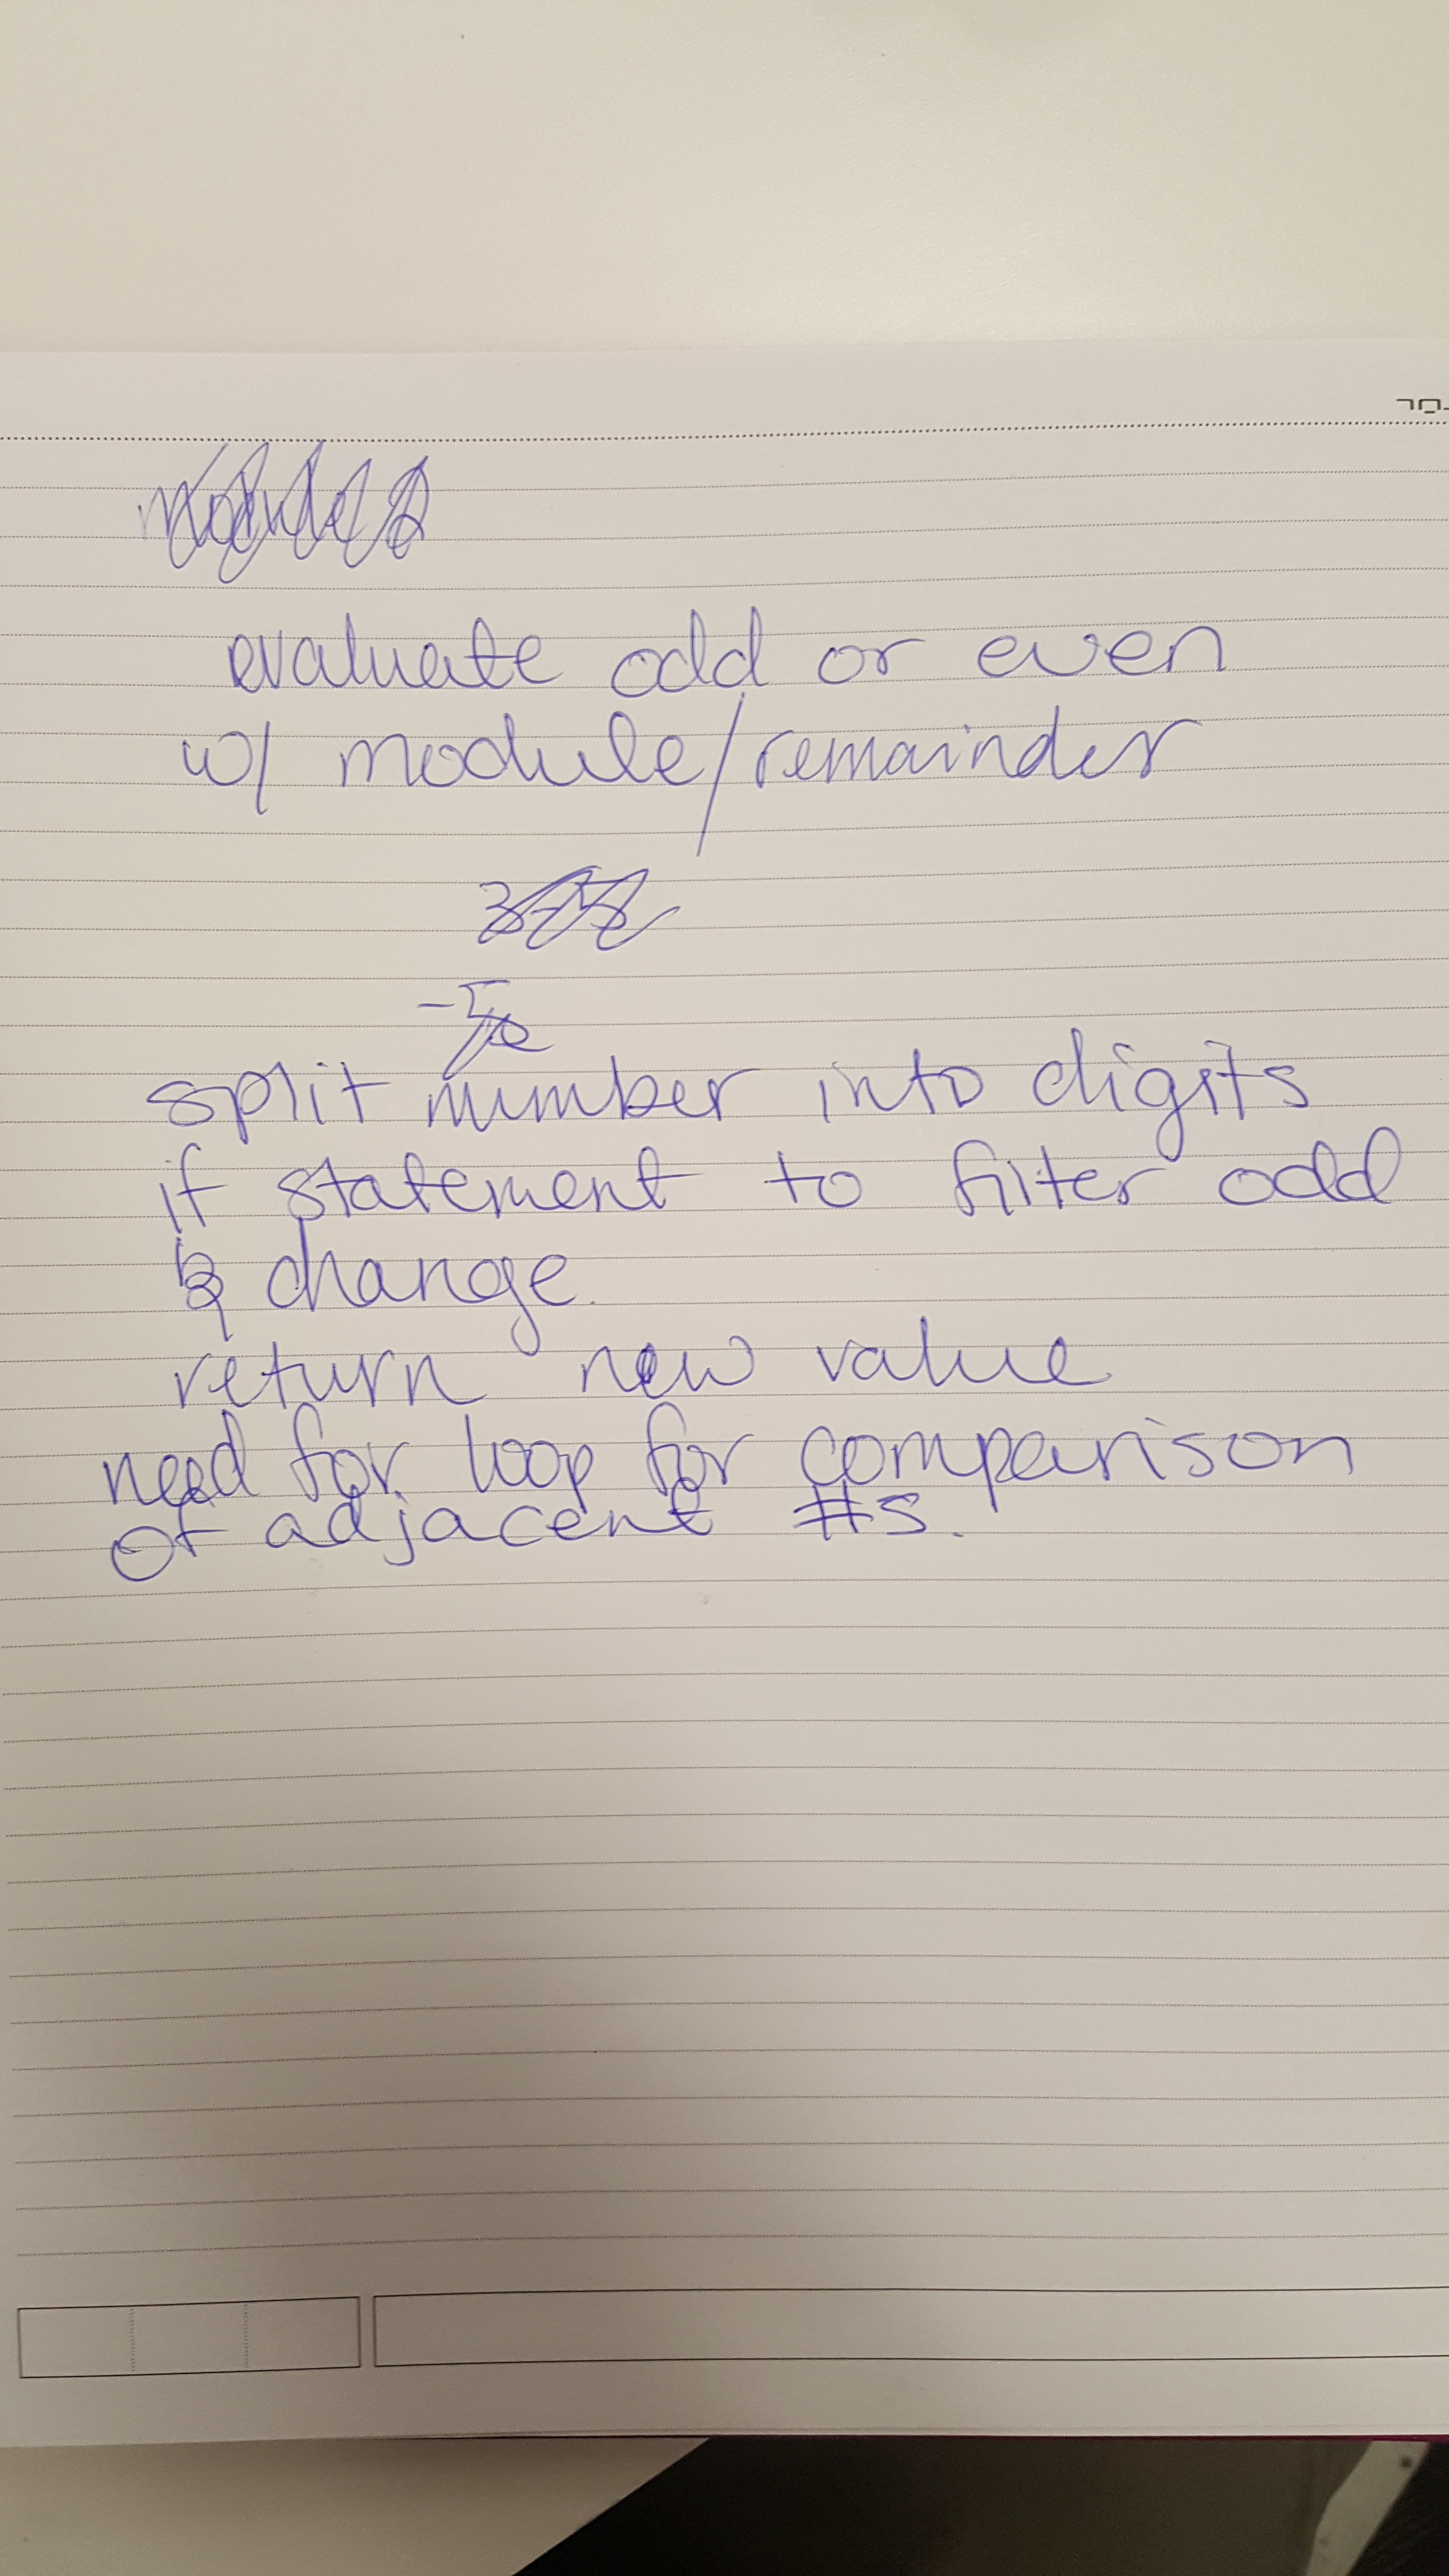 evaluate odd or even
w/ module/remainder
split number into digits
if statement to filter odd
& change.
return new value
need for loop for comparison
of adjacent #s.